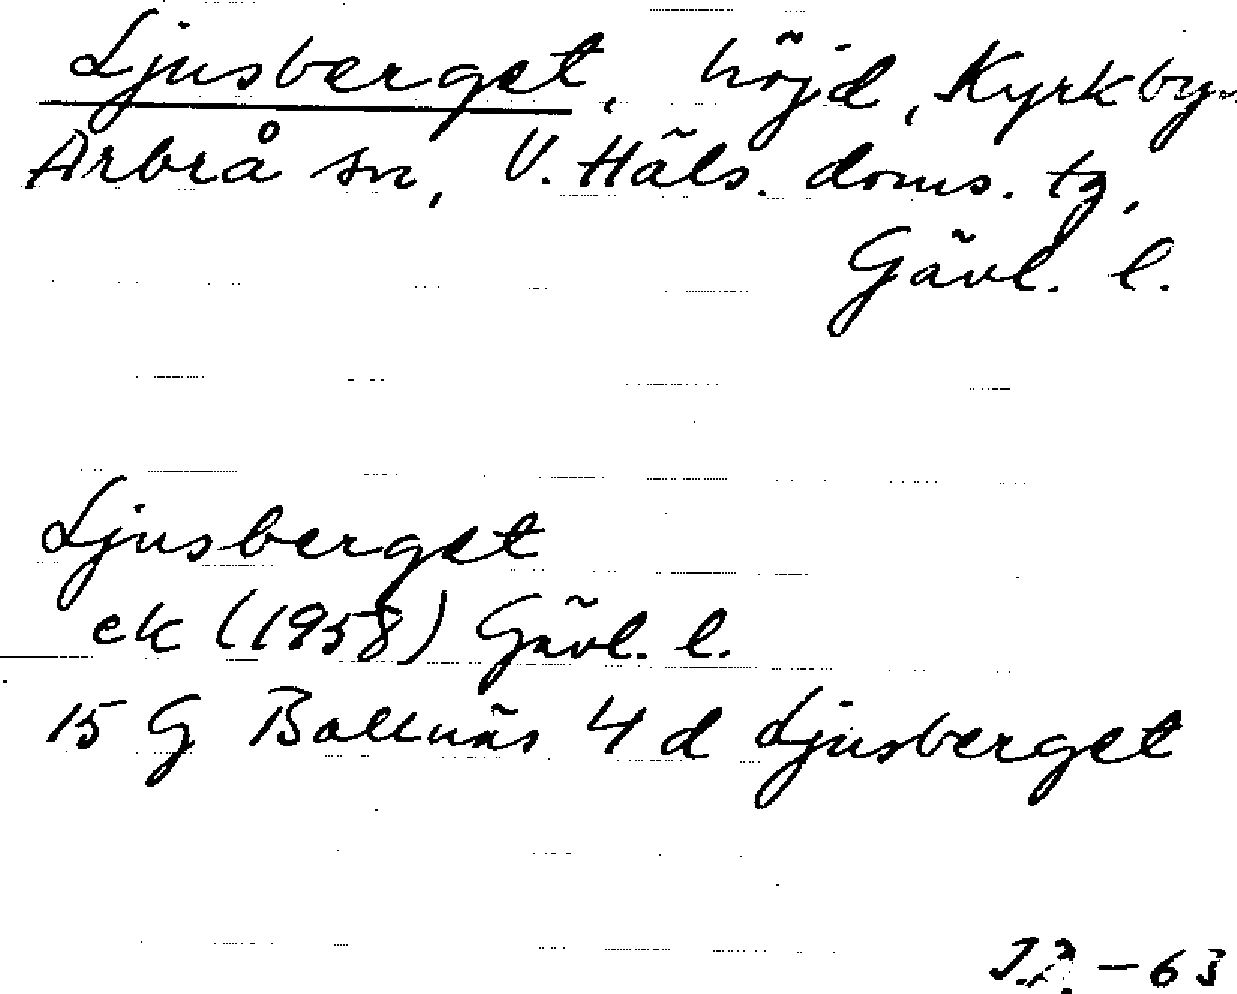 Ljusberget, höjd, Kyrkbyn
Arbrå sn, V. Häls. doms. tg,
Gävl. l.
Ljusberget
ek (1958) Gävl. l.
15 G Bollnäs 4 d Ljusberget
-63